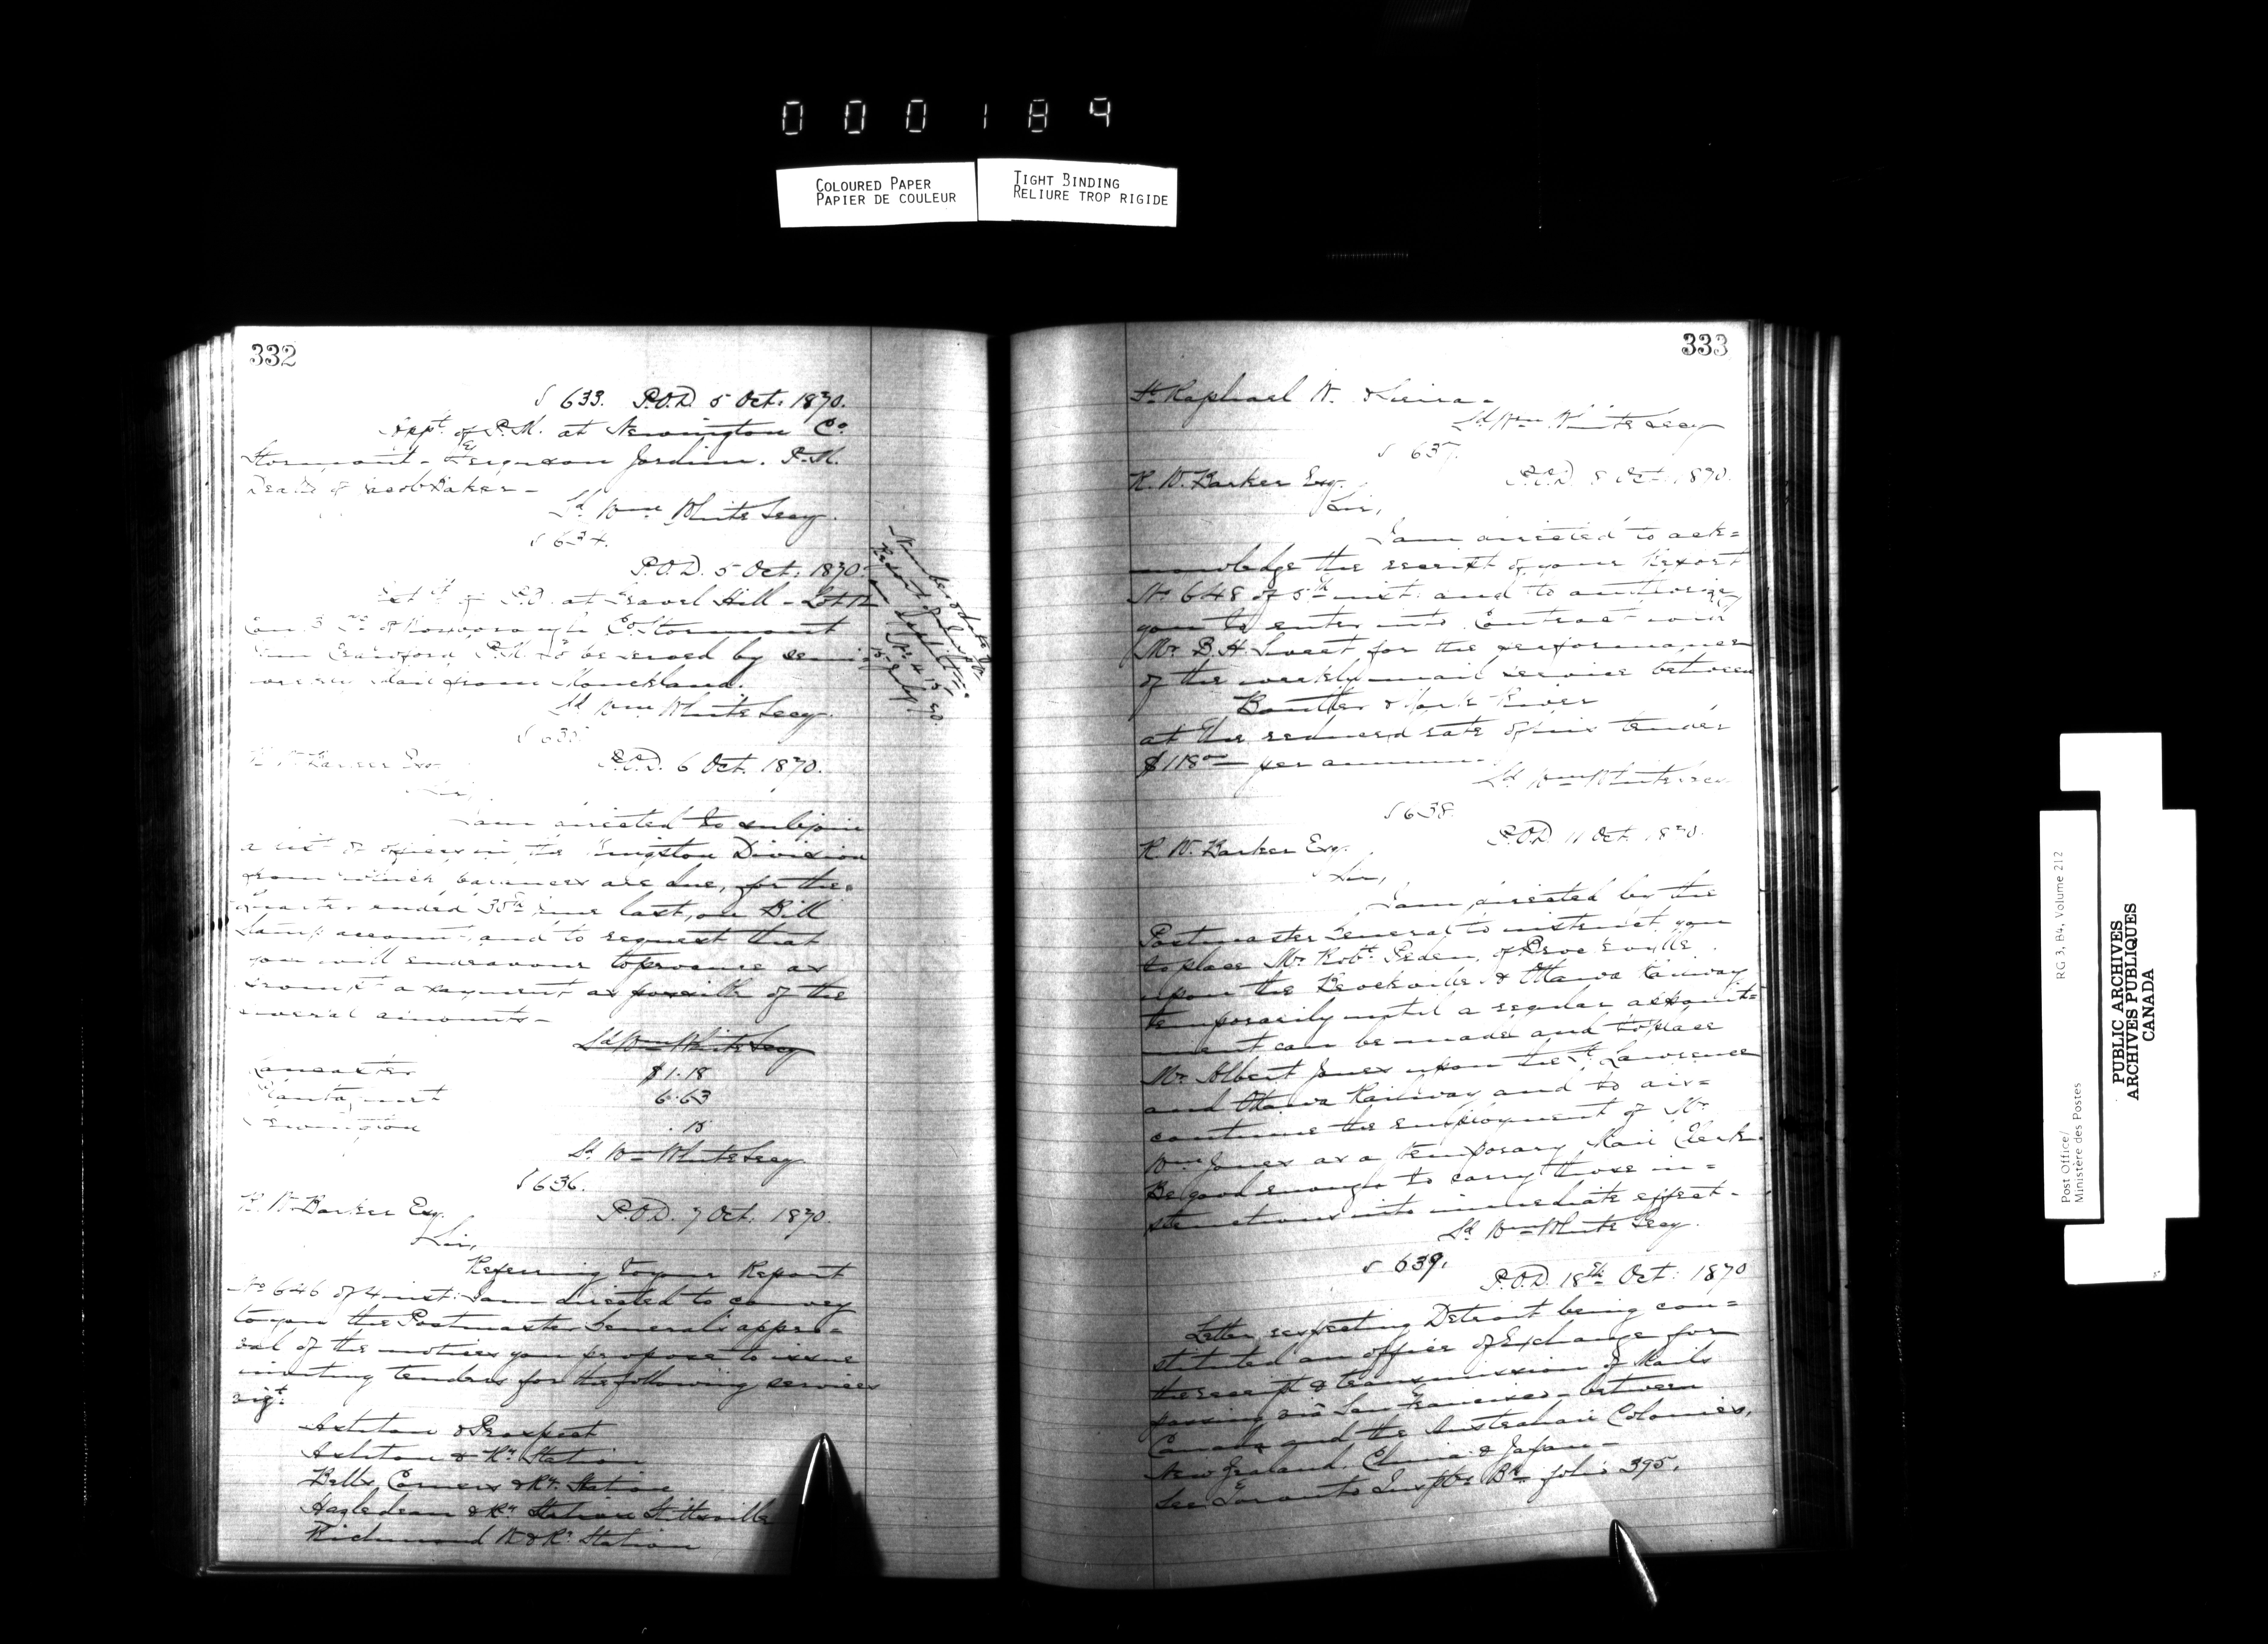 000184
COLOURED PAPER
PAPIER DE COULEUR
TIGHT BINDING
RELIURE TROP RIGIDE
332
633. P.O.D. 5 Oct: 1870.
Appt. of P.M. at Newington Co.
Stormont - Jardine. P.M.
Baker -
Sd Wm White Secy.
634.
P.O.D. 5 Oct: 1870.
of P.O. at Gravel Hill - Lot 12
Con. 3 of Roxborough Co. Stormont
Crawford P.M. To be served by semi
weekly Mail from Monckland.
Sd Wm White Secy.
635
R. W. Barker Esq. P.O.D. 6 Oct. 1870.
Sir,
I am directed to subjoin
a list of offices in the Kingston Division
from which balances are due, for the
quarter ended 30th June last, on Bill
Stamp account and to request that
you will endeavour to procure as
prompt a payment as possible of the
several amounts -
Sd Wm White Secy
Lancaster $1.18
Plantagenet 6.63
Newington .15
Sd Wm White Secy.
636.
R. W. Barker Esq. P.O.D. 7 Oct: 1870.
Sir,
Referring to your Report
No 646 of 4 inst: I am directed to convey
to you the Postmaster General's appro=
val of the notices you propose to issue
inviting tenders for the following services
vizt.
Ashton & Prospect
Ashton & Ry. Station
Bells Corners & Ry. Station
Hazledean & Ry Station Stittsville
Richmond W & Ry. Station
333
St. Raphael W. &
Sd Wm White Secy
637.
R. W. Barker Esq. P.O.D. 8 Oct. 1870.
Sir,
I am directed to ack=
nowledge the receipt of your Report
No 648 of 5th inst: and to authorize
you to enter into Contract with
Mr. B. H. Sweet for the performance
of the weekly mail service between
Boulter & York River
at the reduced rate of his tender
$118 00 per annum.
Sd Wm White Secy
638.
R. W. Barker Esq. P.O.D. 11 Oct. 1870.
Sir,
I am directed by the
Postmaster General to instruct you
to place Mr. Robt. Peden, of Brockville
upon the Brockville & Ottawa Railway
temporarily until a regular appoint=
ment can be made and to place
Mr. Albert Jones upon the St. Lawrence
and Ottawa Railway and to dis=
continue the employment of Mr.
Wm Jones as a temporary Mail Clerk
Be good enough to carry those in=
structions into immediate effect -
Sd Wm White Secy.
639.
P.O.D. 18th Oct: 1870
Letter respecting Detroit being con=
stituted an office of Exchange for
the receipt & transmission of Mails
passing via San Francisco - between
Canada and the Australian Colonies,
New Zealand, China & Japan -
See Toronto Insptrs Bk folio 395.
Post Office/
Ministère des Postes
RG 3, B4, Volume 212
PUBLIC ARCHIVES
ARCHIVES PUBLIQUES
CANADA